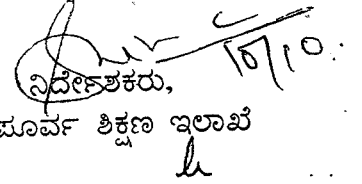 10/10
ನಿರ್ದೇಶಕರು,
ಪೂರ್ವ ಶಿಕ್ಷಣ ಇಲಾಖೆ